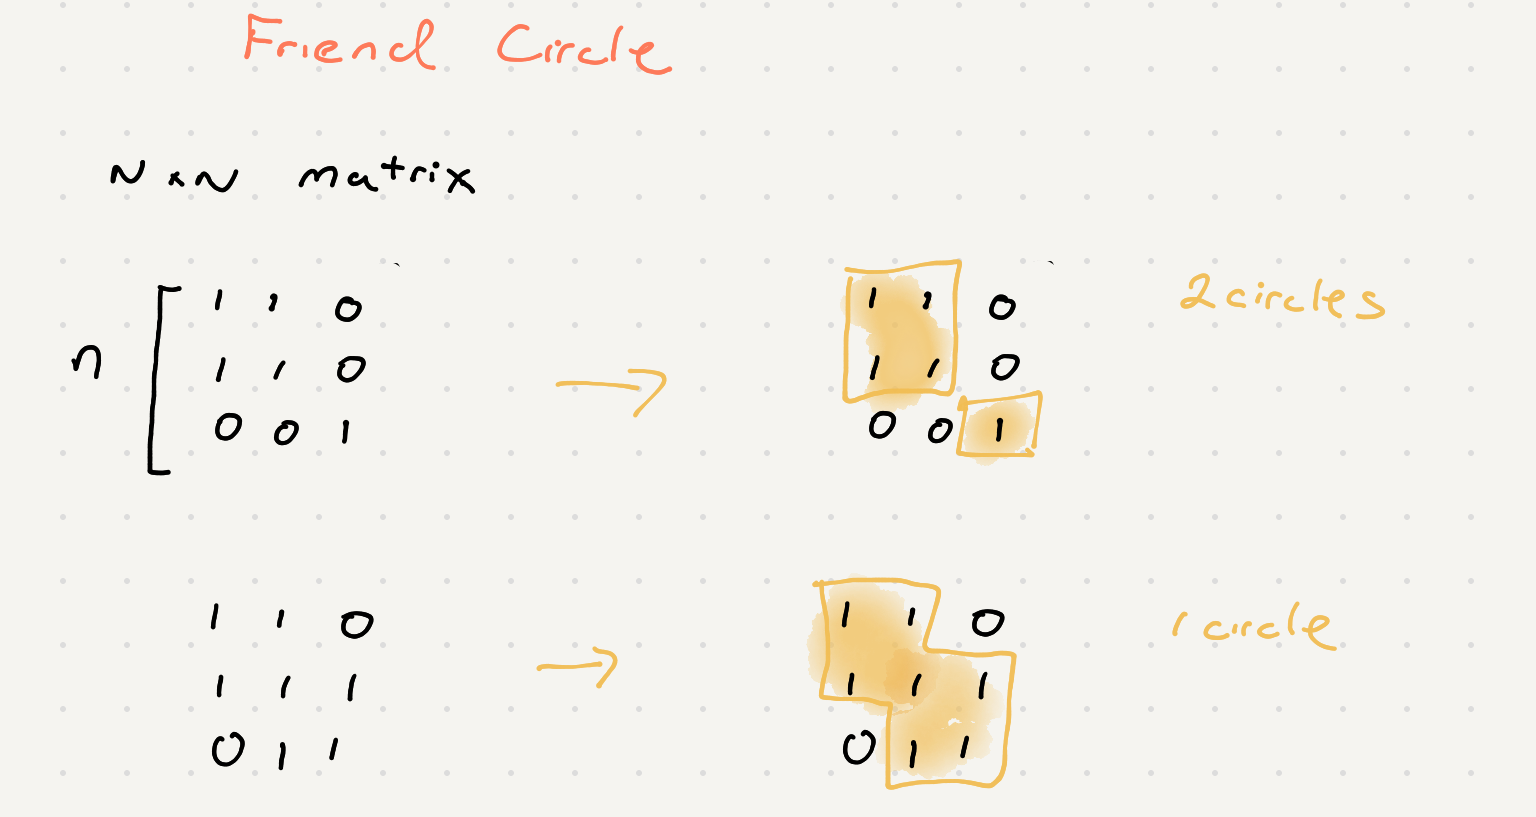 Friend Circle
N x N matrix
1 1 0 1 1 0 2 circles
n 1 1 0 1 1 0
0 0 1 0 0 1
1 1 0 1 1 0 1 circle
1 1 1 1 1 1
0 1 1 0 1 1